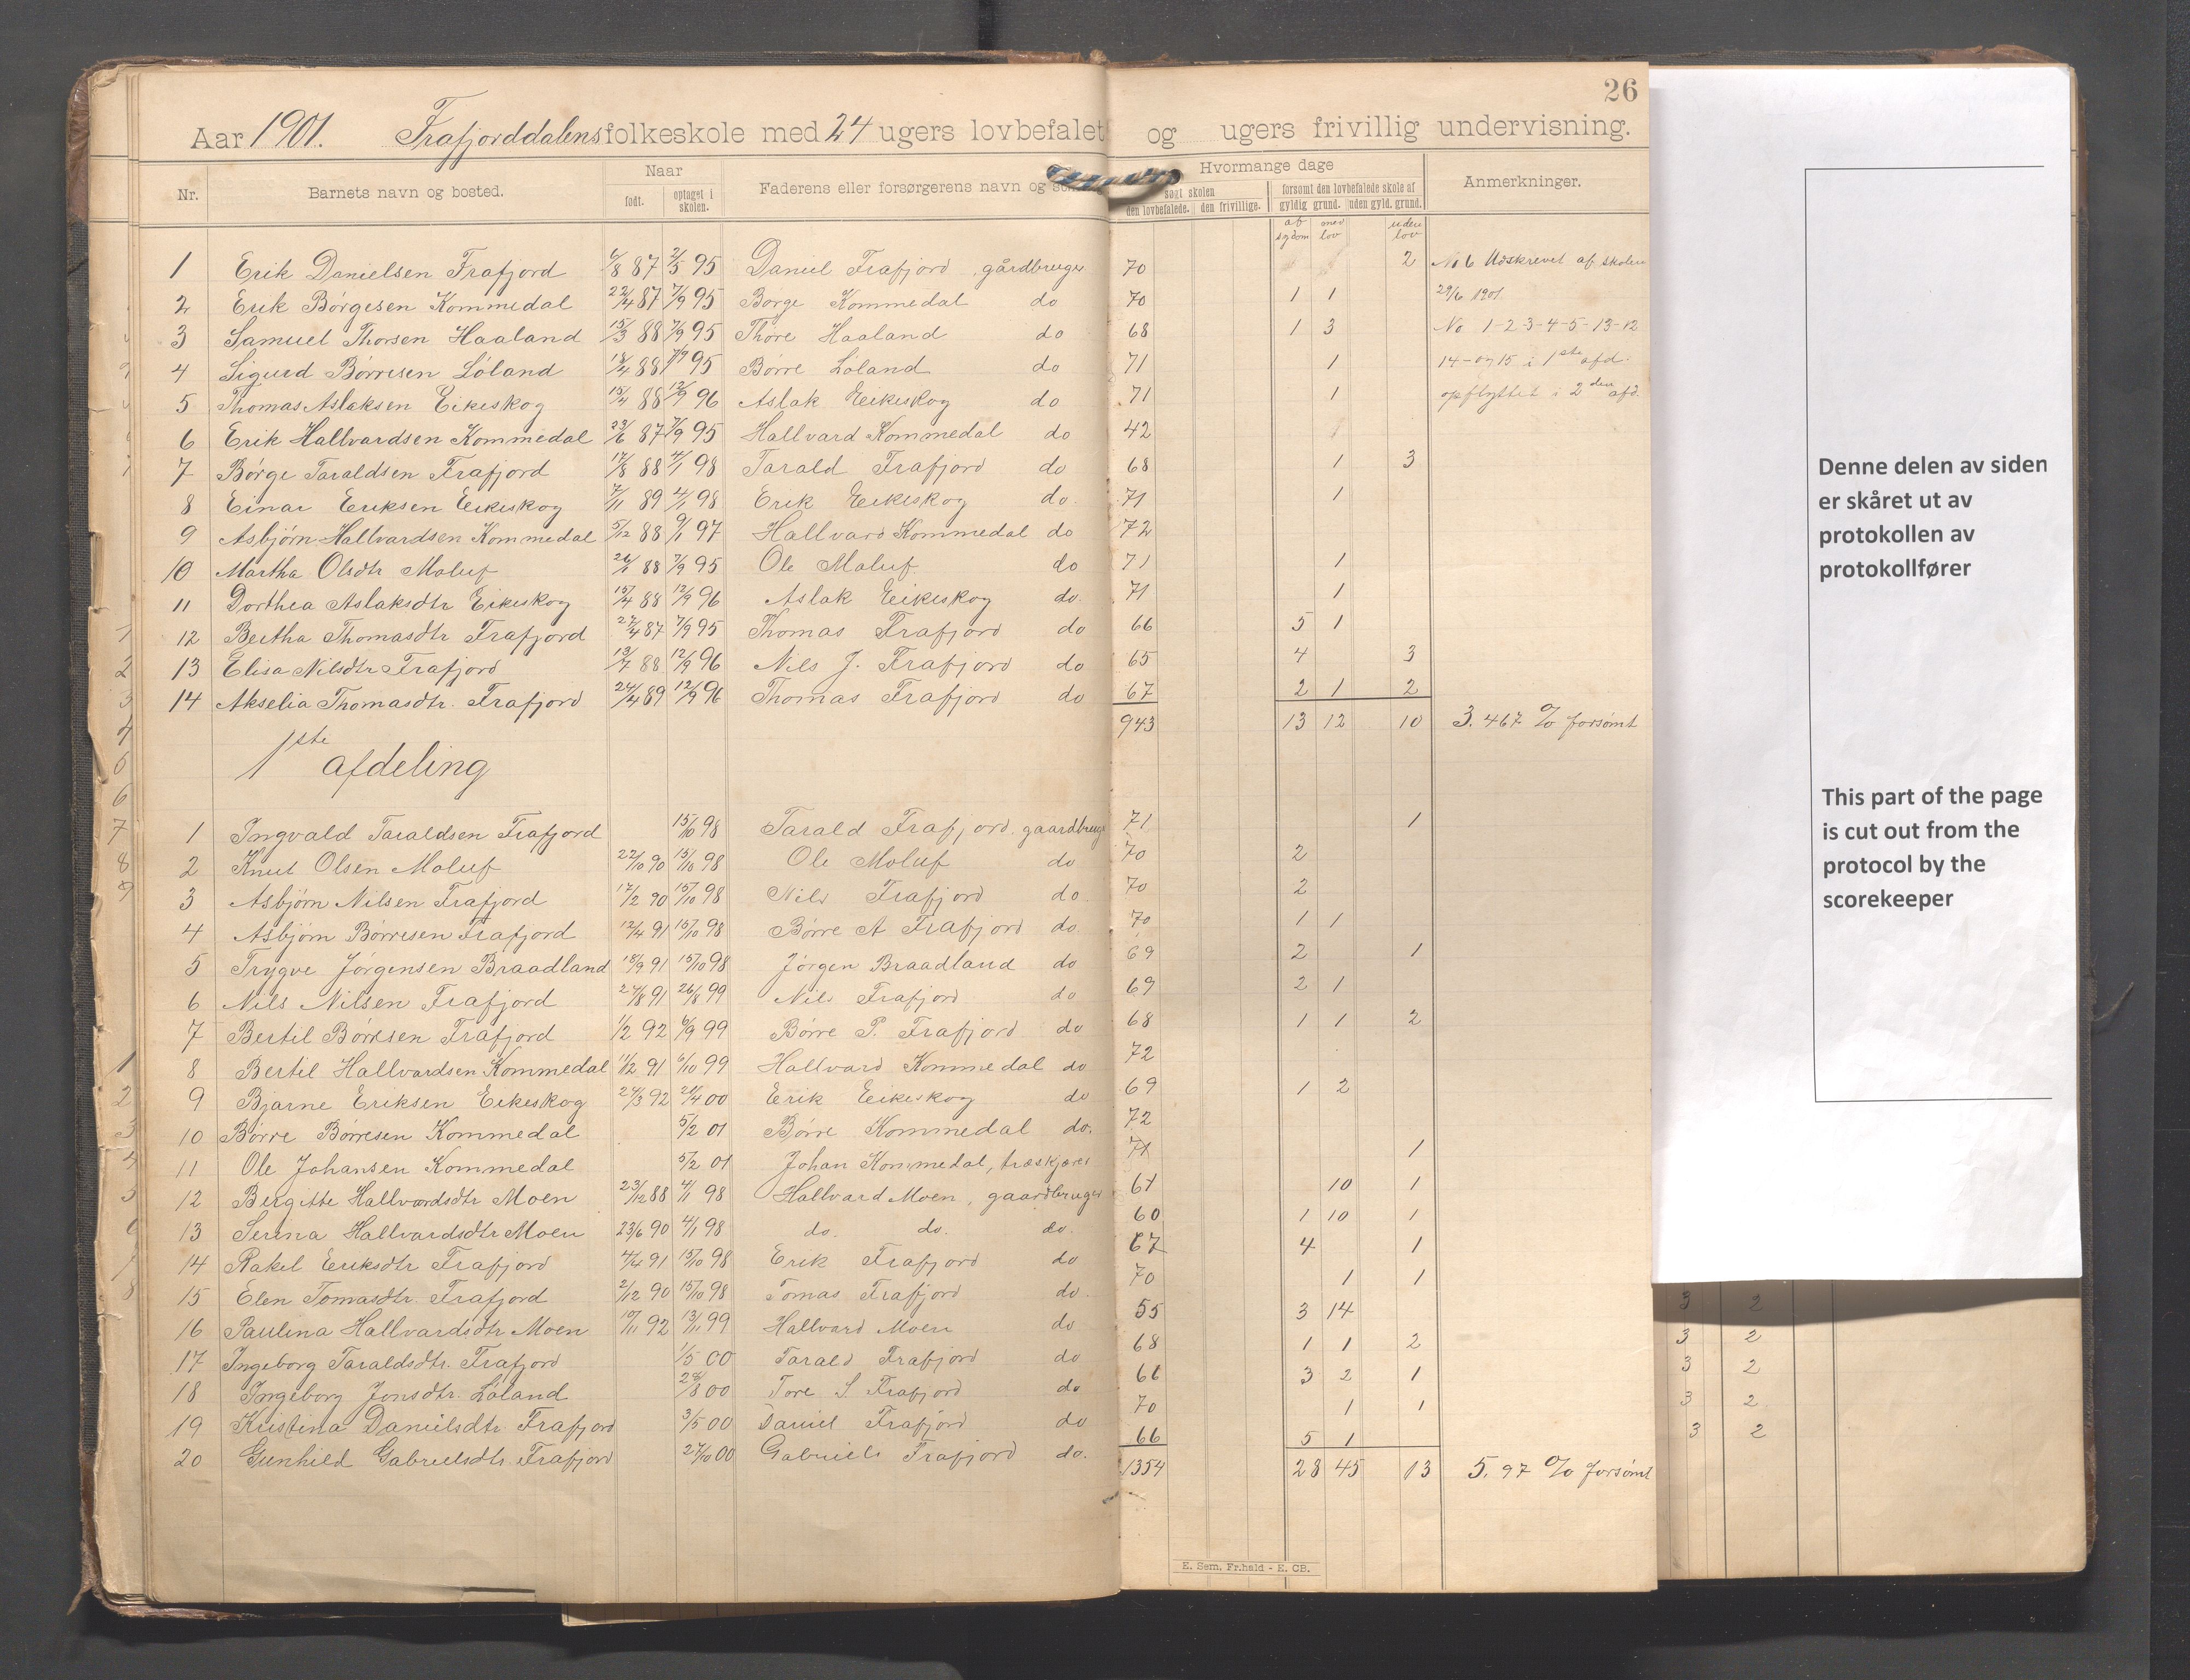 26
Aar 1901. Frafjorddalens folkeskole med 24 ugers lovbefalet og ugers frivillig undervisning.
Nr. Barnets navn og bosted. Naar født. optaget i skolen. Faderens eller forsørgerens navn og Hvormange dage søgt skolen den lovbefalede. den frivillige. forsømt den lovbefalede skole af gyldig grund. uden gyld. grund. Anmerkninger.
af sygdom med lov uden lov
1 Erik Danielsen Frafjord 6/8 87 2/5 95 Daniel Frafjord gårdbruger 70 2 No 6 Udskrevet af skolen
2 Erik Børgesen Kommedal 22/4 87 7/9 95 Børge Kommedal do 70 1 1 29/6 1901
3 Samuel Thorsen Haaland 15/3 88 7/9 95 Thore Haaland do 68 1 3 No 1-2-3-4-5-13-12
4 Sigurd Børresen Løland 18/4 88 7/9 95 Børre Løland do 71 1 14- og 15 i 1ste afd.
5 Thomas Aslaksen Eikeskog 15/4 88 12/9 96 Aslak Eikeskog do 71 1 opflyttet i 2den afd.
6 Erik Hallvardsen Kommedal 23/6 87 7/9 95 Hallvard Kommedal do 42
7 Børge Taraldsen Frafjord 17/8 88 4/1 98 Tarald Frafjord do 68 1 3
8 Einar Eriksen Eikeskog 7/11 89 4/1 98 Erik Eikeskog do. 71 1
9 Asbjørn Hallvardsen Kommedal 5/12 88 9/1 97 Hallvard Kommedal do 72
10 Martha Olsdtr Moluf 26/1 88 7/9 95 Ole Moluf. do 71 1
11 Dorthea Aslaksdtr Eikeskog 15/4 88 12/9 96 Aslak Eikeskog do. 71 1
12 Bertha Thomasdtr Frafjord 27/4 87 7/9 95 Thomas Frafjord do 66 5 1
13 Elisa Nilsdtr Frafjord 13/7 88 12/9 96 Nils J. Frafjord do 65 4 3
14 Akselia Thomasdtr. Frafjord 24/4 89 12/9 96 Thomas Frafjord do 67 2 1 2
943 13 12 10 3.467 % forsømt
1ste afdeling
1 Ingvald Taraldsen Frafjord 15/10 98 Tarald Frafjord. gaardbruge 71 1
2 Knut Olsen Moluf 22/10 90 15/10 98 Ole Moluf do 70 2
3 Asbjørn Nilsen Frafjord 17/2 90 15/10 98 Nils Frafjord do. 70 2
4 Asbjørn Børresen Frafjord 12/4 91 15/10 98 Børre A Frafjord do. 70 1 1
5 Trygve Jørgensen Braadland 18/9 91 15/10 98 Jørgen Braadland do 69 2 1
6 Nils Nilsen Frafjord 24/8 91 26/8 99 Nils Frafjord do 69 2 1
7 Bertil Børresen Frafjord 1/2 92 6/9 99 Børre P. Frafjord do 68 1 1 2
8 Bertil Hallvardsen Kommedal 11/12 91 6/10 99 Hallvard Kommedal do 72
9 Bjarne Eriksen Eikeskog 24/3 92 21/4 00 Erik Eikeskog do 69 1 2
10 Børre Børresen Kommedal 5/2 01 Børre Kommedal do. 72
11 Ole Johansen Kommedal 5/2 01 Johan Kommedal, træskjærer 71 1
12 Bergitte Hallvardsdtr Moen 23/12 88 4/1 98 Hallvard Moen, gaardbruger 61 10 1
13 Serina Hallvardsdtr Moen 23/6 90 4/1 98 do. do. do. 60 1 10 1
14 Rakel Eriksdtr Frafjord 4/4 91 15/10 98 Erik Frafjord do 67 4 1
15 Elen Tomasdtr. Frafjord 2/12 90 15/10 98 Tomas Frafjord do. 70 1 1
16 Paulina Hallvardsdtr Moen 10/11 92 13/11 99 Hallvard Moen do 55 3 14
17 Ingeborg Taraldsdtr. Frafjord 1/5 00 Tarald Frafjord do 68 1 1 2
18 Ingeborg Jonsdtr. Løland 28/8 00 Tore S. Frafjord do 66 3 2 1
19 Kristina Danielsdtr Frafjord 3/5 00 Daniel Frafjord do 70 1 1
20 Gunhild Gabrielsdtr Frafjord 27/10 00 Gabriels Frafjord do. 66 5 1
1354 28 45 13 5.97 % forsømt
E. Sem, Fr.hald - E. CB.
Denne delen av siden
er skåret ut av
protokollen av
protokollfører
This part of the page
is cut out from the
protocol by the
scorekeeper
3 2
3 2
3 2
3 2
3 2